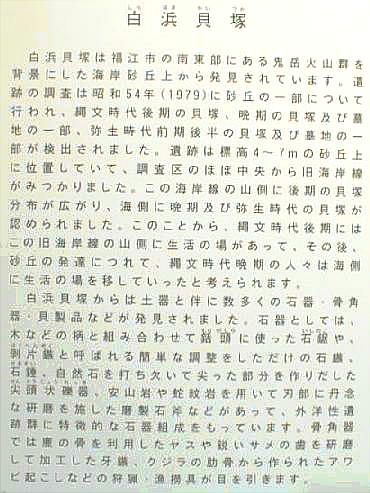 白浜貝塚
白浜貝塚は福江市の南東部にある鬼岳火山群を
背景にした海岸砂丘上から発見されています。遺
跡の調査は昭和54年(1979)に砂丘の一部について
行われ、縄文時代後期の貝塚、晩期の貝塚及び墓
地の一部、弥生時代前期後半の貝塚及び墓地の一
部が検出されました。遺跡は標高4~7mの砂丘上
に位置していて、調査区のほぼ中央から旧海岸線
がみつかりました。この海岸線の山側に後期の貝塚
分布が広がり、海側に晩期及び弥生時代の貝塚が
認められました。このことから、縄文時代後期には
この旧海岸線の山側に生活の場があって、その後、
砂丘の発達につれて、縄文時代晩期の人々は海側
に生活の場を移していったと考えられます。
白浜貝塚からは土器と伴に数多くの石器・骨角
器・貝製品などが発見されました。石器としては、
木などの柄と組み合わせて銛頭に使った石鋸や、
剥片鏃と呼ばれる簡単な調整をしただけの石鏃、
石錘、自然石を打ち欠いて尖った部分を作りだした
尖頭状礫器、安山岩や蛇紋岩を用いて刃部に丹念
な研磨を施した磨製石斧などがあって、外洋性遺
跡群に特徴的な石器組成をもっています。骨角器
では鹿の骨を利用したヤスや鋭いサメの歯を研磨
して加工した牙鏃、クジラの肋骨から作られたアワ
ビ起こしなどの狩猟・漁撈具が目を引きます。